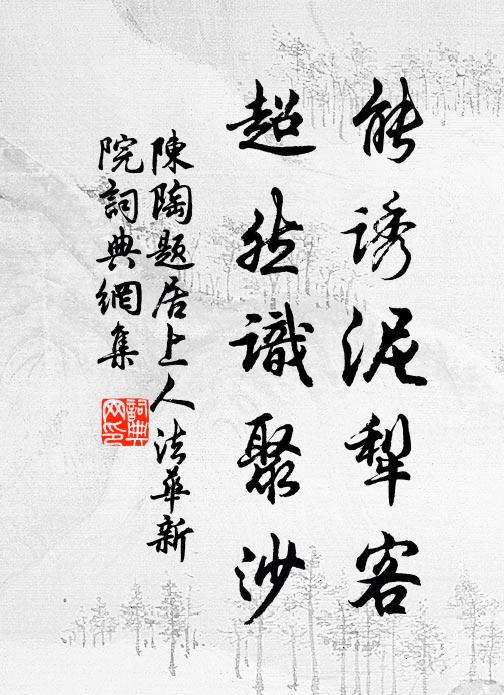 能誘泥犁客
超然識聚沙
陳陶題居上人法華新
院詞典網集
詞典
网印